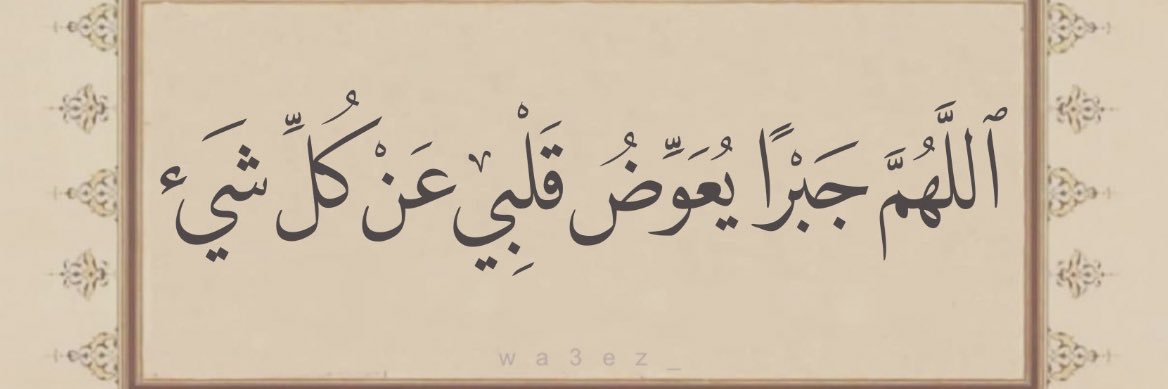 ٱللَّهُمَّ جَبْرًا يُعَوِّضُ قَلْبِيْ عَنْ كُلِّ شَيء
wa3ez_